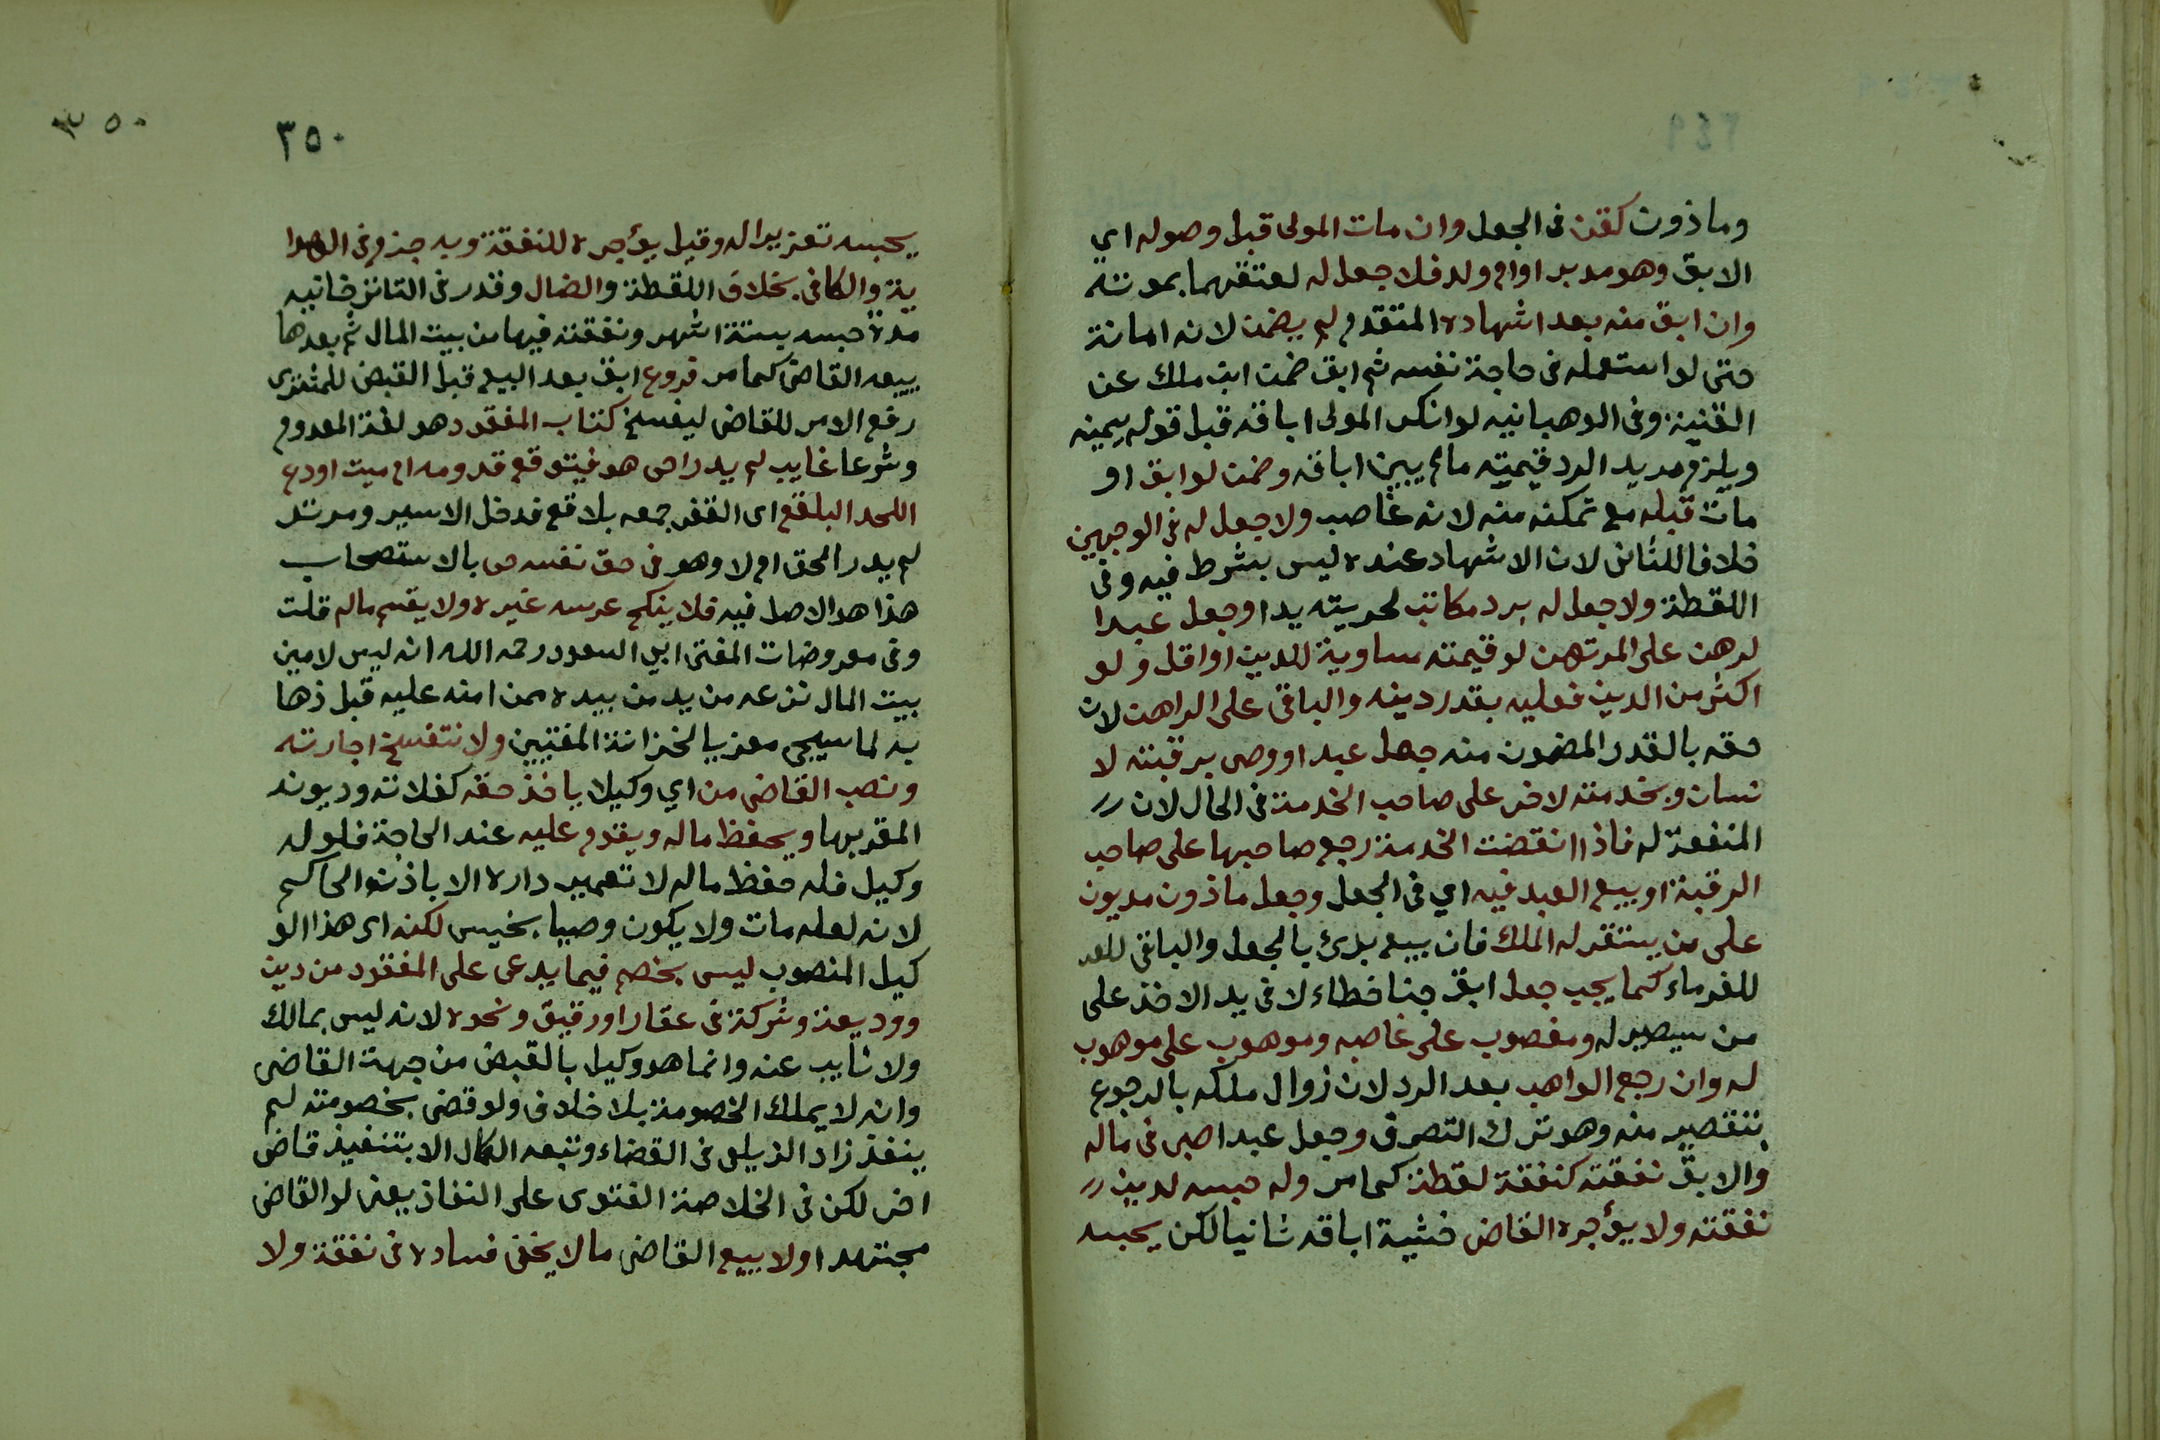 وماذون كقن فى الجعل وان مات المولى قبل وصوله اي
الابق وهو مدبر او ام ولد فلا جعل له لعتقهما بموته
وان ابق منه بعد اشهاده المتقدم لم يضمن لانه امانة
حتى لو استعمله فى حاجة نفسه ثم ابق ضمن ابن ملك عن
القنية وفى الوهبانيه لو انكر المولى اباقه قبل قوله بيمينه
ويلزم مديد الرد قيمته مالم يبين اباقه وضمن لو ابق او
مات قبله مع تمكنه منه لانه غاصب ولا جعل له فى الوجهين
خلافا للثانى لان الاشهاد عنده ليس بشرط فيه وفى
اللقطة ولا جعل له برد مكاتب لحريته يدا وجعل عبدا
لرهن على المرتهن لو قيمته مساوية للدين او اقل ولو
اكثر من الدين فعليه بقدر دينه والباقى على الراهن لان
حقه بالقدر المضمون منه جعل عبد او وصى برقبته لا
نسان وبخدمته لاخر على صاحب الخدمة فى الحال لان
المنفعة له فاذا انقضت الخدمة رجع صاحبها على صاحب
الرقبة او بيع العبد فيه اي فى الجعل وجعل ماذون مديون
على من يستقر له الملك فان بيع بدئ بالجعل والباقى للعد
للغرماء كما يجب جعل ابق جنا خطاء لا فى يد الاخذ على
من سيصير له ومغصوب على غاصبه وموهوب على موهوب
له وان رجع الواهب بعد الرد لان زوال ملكه بالرجوع
بتقصير منه وهو ترك التصرف وجعل عبدا صبى فى ماله
والابق نفقته كنفقة لقطة كما مر وله حبسه لدين
نفقته ولا يؤجره القاضى خشية اباقه ثانيا لكن يحبسه
٣٥٠
٣٥٠
يحبسه تعزيرا له وقيل يؤجره للنفقة وبه جزم فى الهدا
ية والكافى بخلاف اللقطة والضال وقدر فى التاتر خانيه
مدة حبسه بستة اشهر ونفقته فيها من بيت المال ثم بعدها
يبيعه القاضى كما مر فروع ابق بعد البيع قبل القبض للمشترى
رفع الامر للقاضى ليفسخ كتاب المفقود هو لغة المعدوم
وشرعا غايب لم يدر احى هو فيتوقع قدومه ام ميت اودع
اللحد البلقع اى القفر جمعه بلاقع فدخل الاسير ومرتد
لم يدر الحق ام لا وهو فى حق نفسه حى بالاستصحاب
هذا هو الاصل فيه فلا ينكح عرسه غيره ولا يقسم ماله قلت
وفى معروضات المفتى ابى السعود رحمه الله انه ليس لامين
بيت المال نزعه من يد من بيده ممن امنه عليه قبل ذها
به لما سيجى معزيا لخزانة المفتيين ولا تنفسخ اجارته
ونصب القاضى من اي وكيلا ياخذ حقه كفلاته وديونه
المقر بها ويحفظ ماله ويقوم عليه عند الحاجة فلو له
وكيل فله حفظ ماله لا تعمير داره الا باذن الحاكم
لانه لعله مات ولا يكون وصيا بخيس لكنه اى هذا الو
كيل المنصوب ليس بخصم فيما يدعى على المفقود من دين
ووديعة وشركة فى عقار او رقيق ونحوه لانه ليس بمالك
ولا نايب عنه وانما هو وكيل بالقبض من جهة القاضى
وانه لا يملك الخصومة بلا خلاف ولو قضى بخصومته لم
ينفذ زاد الزيلعى فى القضاء وتبعه الكمال الا بتنفيذ قاضى
اخر لكن فى الخلاصة الفتوى على النفاذ يعنى لو القاضى
مجتهدا ولا يبيع القاضى مالا يخفى فساده فى نفقة ولا